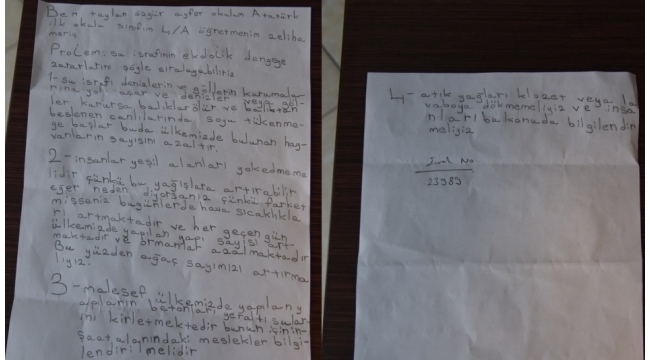 Ben taylan özgür ayfor okulum Atatürk
ilk okulu sınıfım 4/A öğretmenim zeliha
meriş
Problem: su israfının ekdolik dengeye
zararlarını şöyle sıralayabiliriz
1-su israfı denizlerin ve göllerin kurumala-
rına yol açar ve denizler veya göl-
ler kurursa balıklar ölür ve balıktan
beslenen canlılarında soyu tükenme-
ye başlar buda ülkemizde bulunan hay-
vanların sayısını azaltır.
2-insanlar yeşil alanları yokedmeme
lidir çünkü bu yağışlara artırabilir
eğer neden diyorsanız çünkü farket
mişseniz bugünlerde hava sıcaklıkla
rı artmaktadır ve her geçen gün
ülkemizde yapılan yapı sayısı art-
maktadır ve ormanlar azalmaktadır
Bu yüzden ağaç sayımızı artırma
lıyız.
3-malesef ülkemizde yapılan y
apıların betonları yeraltı sular-
ını kirletmektedir bunun için in-
şaat alanındaki meslekler bilgi-
lendirilmelidir
4-atık yağları klozet veya la
vaboya dökmemeliyiz ve insa
nları bu konuda bilgilendir
meliyiz
No
23989